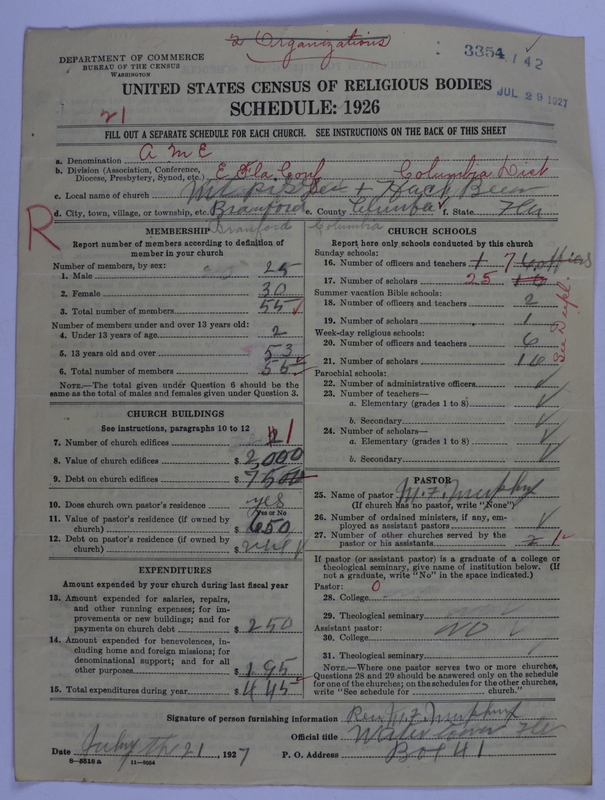 2 Organizations
3354 142
DEPARTMENT OF COMMERCE
BUREAU OF THE CENSUS
WASHINGTON
JUL 29 1927
UNITED STATES CENSUS OF RELIGIOUS BODIES
SCHEDULE: 1926
21
FILL OUT A SEPARATE SCHEDULE FOR EACH CHURCH. SEE INSTRUCTIONS ON THE BACK OF THIS SHEET
a. Denomination A M E
b. Division (Association, Conference, Diocese, Presbytery, Synod, etc.) E Fla Conf Columbia Dist
c. Local name of church
d. City, town, village, or township, etc. Branford e. County Columba f. State Fla
Branford Columbia
R
MEMBERSHIP
Report number of members according to definition of
member in your church
Number of members, by sex:
1. Male 25
2. Female 30
3. Total number of members 55
Number of members under and over 13 years old:
4. Under 13 years of age 2
5. 13 years old and over 53
6. Total number of members 55
NOTE.—The total given under Question 6 should be the
same as the total of males and females given under Question 3.
CHURCH BUILDINGS
See instructions, paragraphs 10 to 12
7. Number of church edifices 2 1
8. Value of church edifices $ 2000
9. Debt on church edifices $
10. Does church own pastor's residence yes
Yes or No
11. Value of pastor's residence (if owned by
church) $ 650
12. Debt on pastor's residence (if owned by
church) $
EXPENDITURES
Amount expended by your church during last fiscal year
13. Amount expended for salaries, repairs,
and other running expenses; for im-
provements or new buildings; and for
payments on church debt $ 250
14. Amount expended for benevolences, in-
cluding home and foreign missions; for
denominational support; and for all
other purposes $ 195
15. Total expenditures during year $ 445
CHURCH SCHOOLS
Report here only schools conducted by this church
Sunday schools:
16. Number of officers and teachers 1 7
17. Number of scholars 25 16
Summer vacation Bible schools:
18. Number of officers and teachers 2
19. Number of scholars 1
Week-day religious schools:
20. Number of officers and teachers 6
21. Number of scholars 16
See Dupl.
Parochial schools:
22. Number of administrative officers
23. Number of teachers—
a. Elementary (grades 1 to 8)
b. Secondary
24. Number of scholars—
a. Elementary (grades 1 to 8)
b. Secondary
PASTOR
25. Name of pastor M. F. Murphy
(If church has no pastor, write "None")
26. Number of ordained ministers, if any, em-
ployed as assistant pastors
27. Number of other churches served by the
pastor or his assistants 2 1
If pastor (or assistant pastor) is a graduate of a college or
theological seminary, give name of institution below. (If
not a graduate, write "No" in the space indicated.)
Pastor: 0
28. College
29. Theological seminary
Assistant pastor: NO
30. College
31. Theological seminary
NOTE.—Where one pastor serves two or more churches,
Questions 28 and 29 should be answered only on the schedule
for one of the churches; on the schedules for the other churches,
write "See schedule for church."
Signature of person furnishing information Rev M. F. Murphy
Official title Fla
Date July the 21, 1927 P. O. Address Box 41
8—5518 a 11—9054